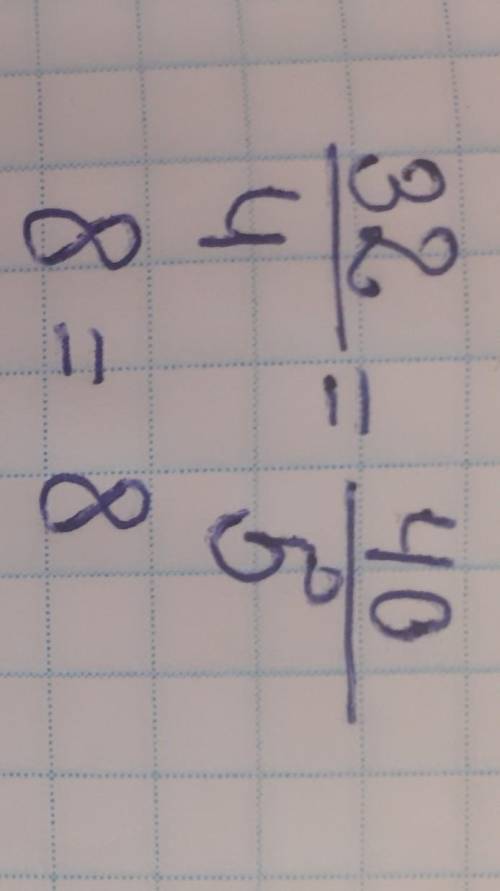 32/4 = 40/5
8 = 8